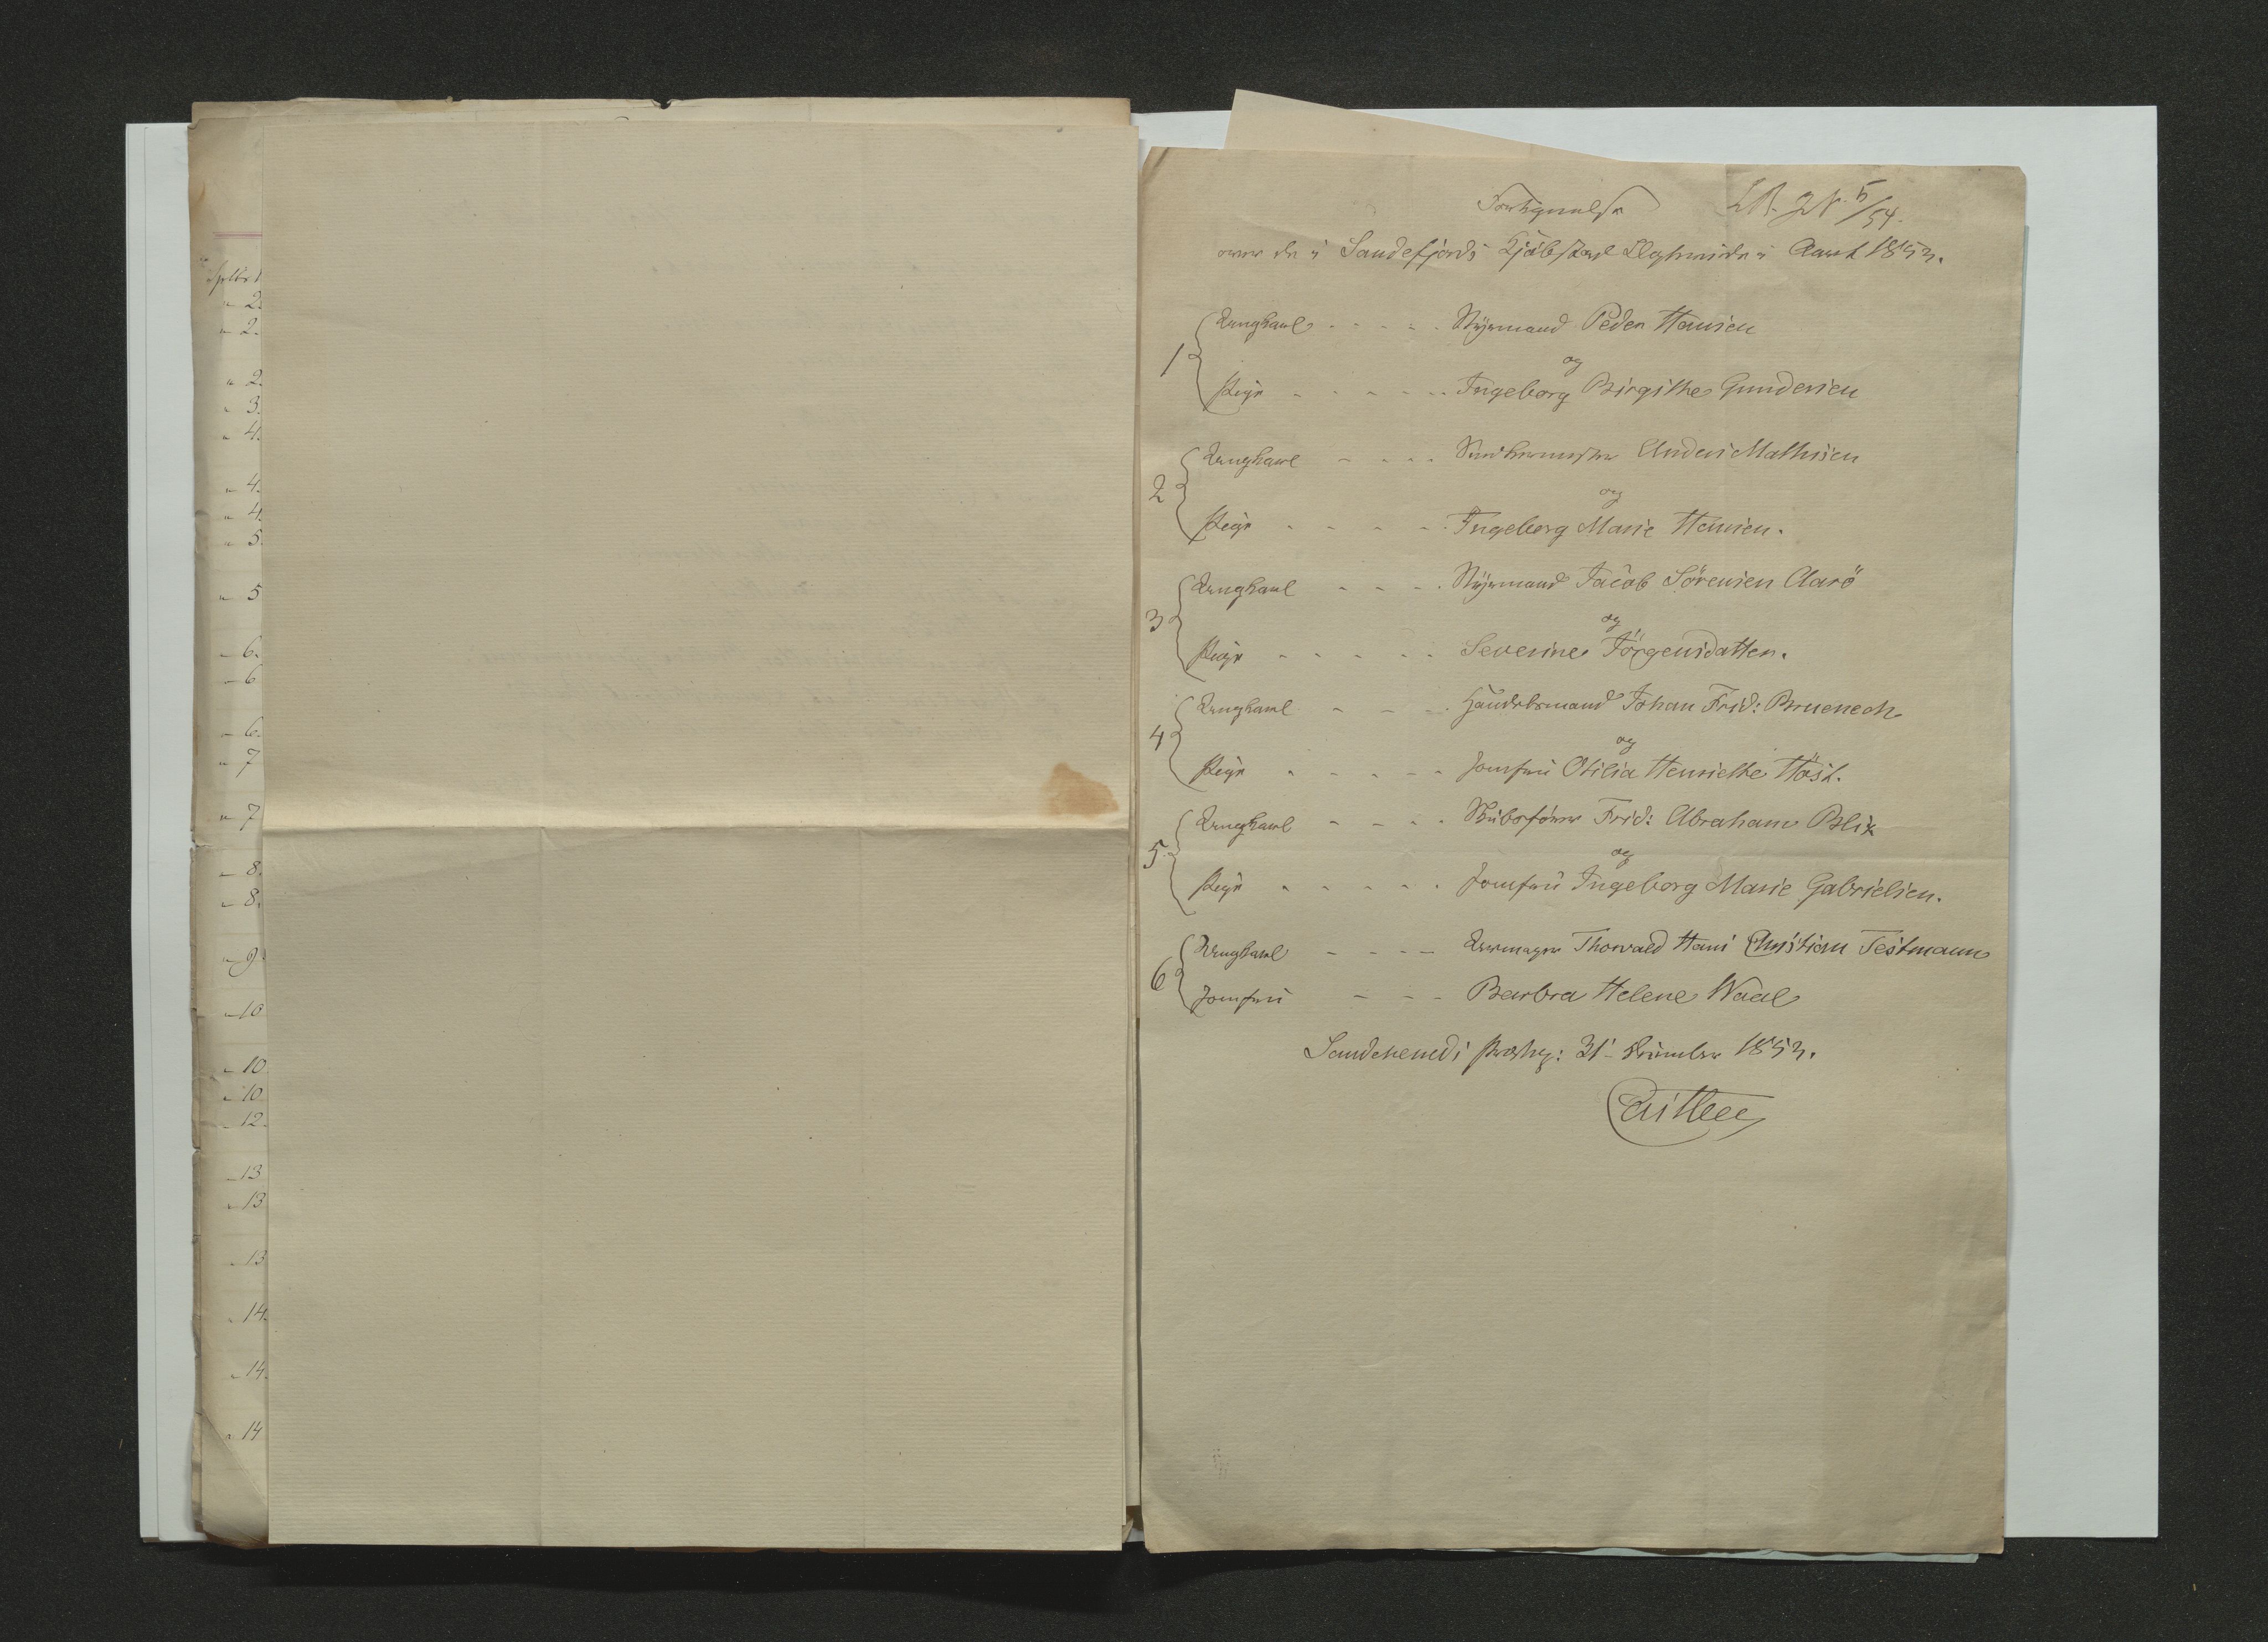 Septbr 1
" 2.
" 2.
" 2.
" 3.
" 4.
" 4.
" 4.
" 5.
" 5
" 6.
" 6
" 6.
" 7
" 7
" 8.
" 8.
" 9
" 10
" 10
" 10
" 12.
" 13
" 13
" 13
" 14.
" 14.
" 14
Fortegnelse
5/54.
over de i Sandefjords Kjøbstad Ægteviede i Aaret 1853.
1 Ungkarl - - - - Styrmand Peder Hansen
og
Pige - - - - - Ingeborg Birgithe Gundersen
2 Ungkarl - - - - Anders Mathisen
og
Pige - - - - Ingeborg Marie Hansen.
3 Ungkarl - - - - Styrmand Jacob Sörensen Aarö
og
Pige - - - - - Severine Jörgensdatter.
4 Ungkarl - - - Handelsmand Johan Frid: Bruenech
og
Pige - - - - - Jomfru Otilia Henriette Höst.
5 Ungkarl - - - - Skibsfører Frid: Abraham Blix
og
Pige - - - - - Jomfru Ingeborg Marie Gabrielsen.
6 Ungkarl - - - - Thorvald Hans Christian Testmann
Jomfru - - - Barbra Helene Waal
Sandeherreds Præstg: 31 December 1853.